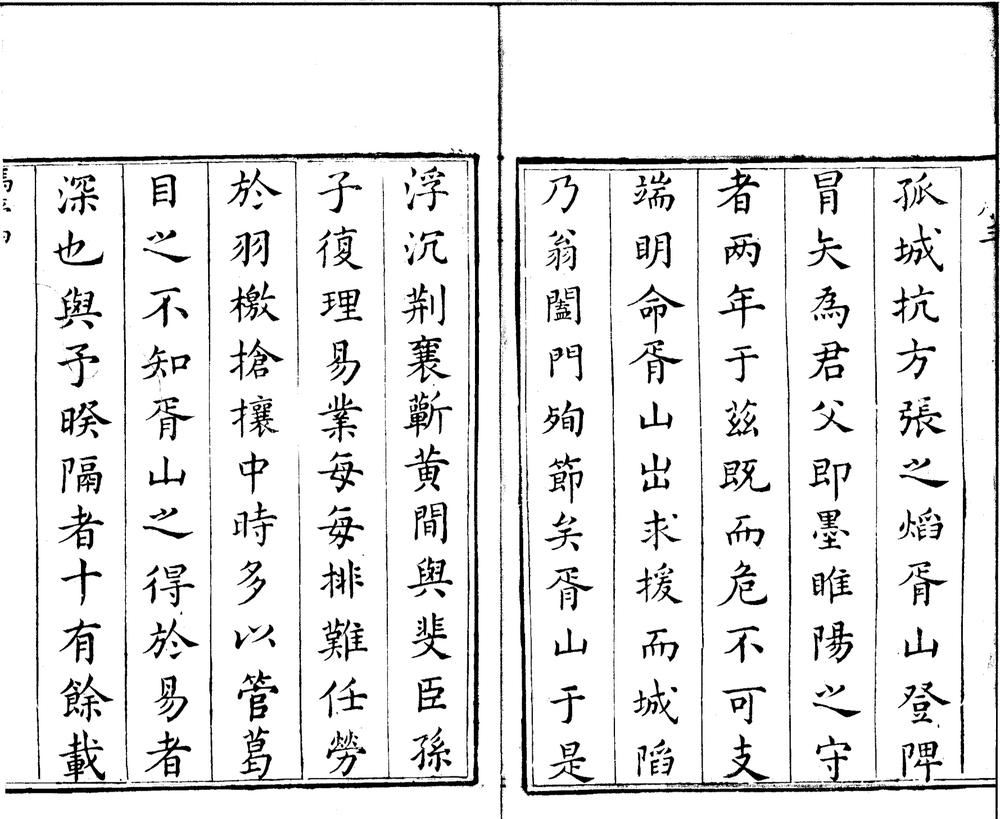 孤城抗方張之熖胥山登陴
冒矢為君父即墨睢陽之守
者两年于茲既而危不可支
端明命胥山出求援而城陷
乃翁闔門殉節矣胥山于是
浮沉荆襄蘄黄間與斐臣孫
子復理易業每每排難任勞
於羽檄搶攘中時多以管葛
目之不知胥山之得於易者
深也與予暌隔者十有餘載